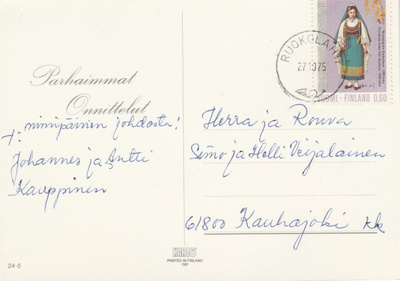 Parhaimmat
Onnittelut
+ nimipäivän johdosta!
Johannes ja Antti
Kauppinen
24-5
PRINTED IN FINLAND
RUOKOLAHTI
27 10 75
SUOMI - FINLAND 0,60
Herra ja Rouva
Simo ja Helli Veijalainen
61800 Kauhajoki kk